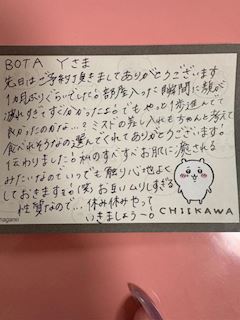 BOTA Yさま
先日はご予約頂きましてありがとうございます
1ヵ月ぶりぐらいでした。部屋入った瞬間に顔が
疲れすぎてすぐ分かったよ。でもやっと1歩進んでて
良かったのかな…？ミスドの差し入れもちゃんと考えて
食べれそうなの選んでくれてありがとうございます。
伝わりました。私のすべすべお肌に癒される
みたいなのでいつでも触り心地よく
しておきますね。(笑)お互いムリしすぎる
性質なので…休み休みやって
いきましょうー。
CHIIKAWA
nagano